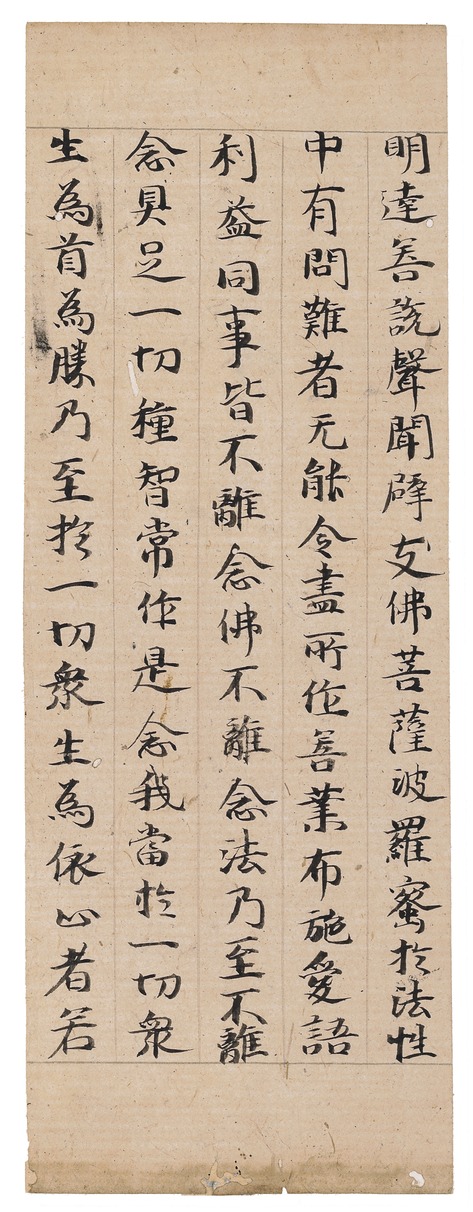 明達善說聲聞辟支佛菩薩波羅蜜於法性
中有問難者无能令盡所作善業布施愛語
利益同事皆不離念佛不離念法乃至不離
念具足一切種智常作是念我當於一切衆
生為首為勝乃至於一切衆生為依止者若